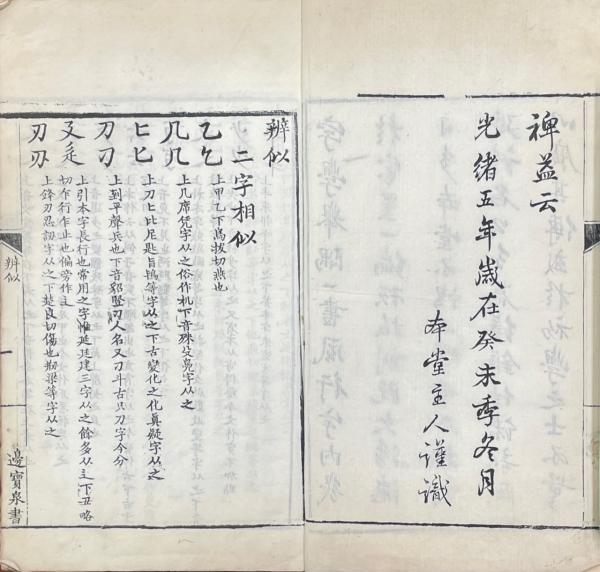 裨益云
光緒五年歲在癸未季冬月
本堂主人謹識
辨似
二字相似
乙𠃉 上甲乙下烏拔切燕也
几几 上几席凭字从之俗作机下音殊殳鳧字从之
匕𠤎 上刀匕比尼匙旨鴇等字从之下古變化之化真疑字从之
刀刁 上到平聲兵也下音貂豎刁人名又刀斗古只刀字今分
廴辵 上引本字長行也常用之字惟延廷建三字从之餘多从辶下丑略
切乍行乍止也偏旁作辶
刃刅 上鋒刃忍訒字从之下楚良切傷也刱梁等字从之
辨似
邊寶泉書